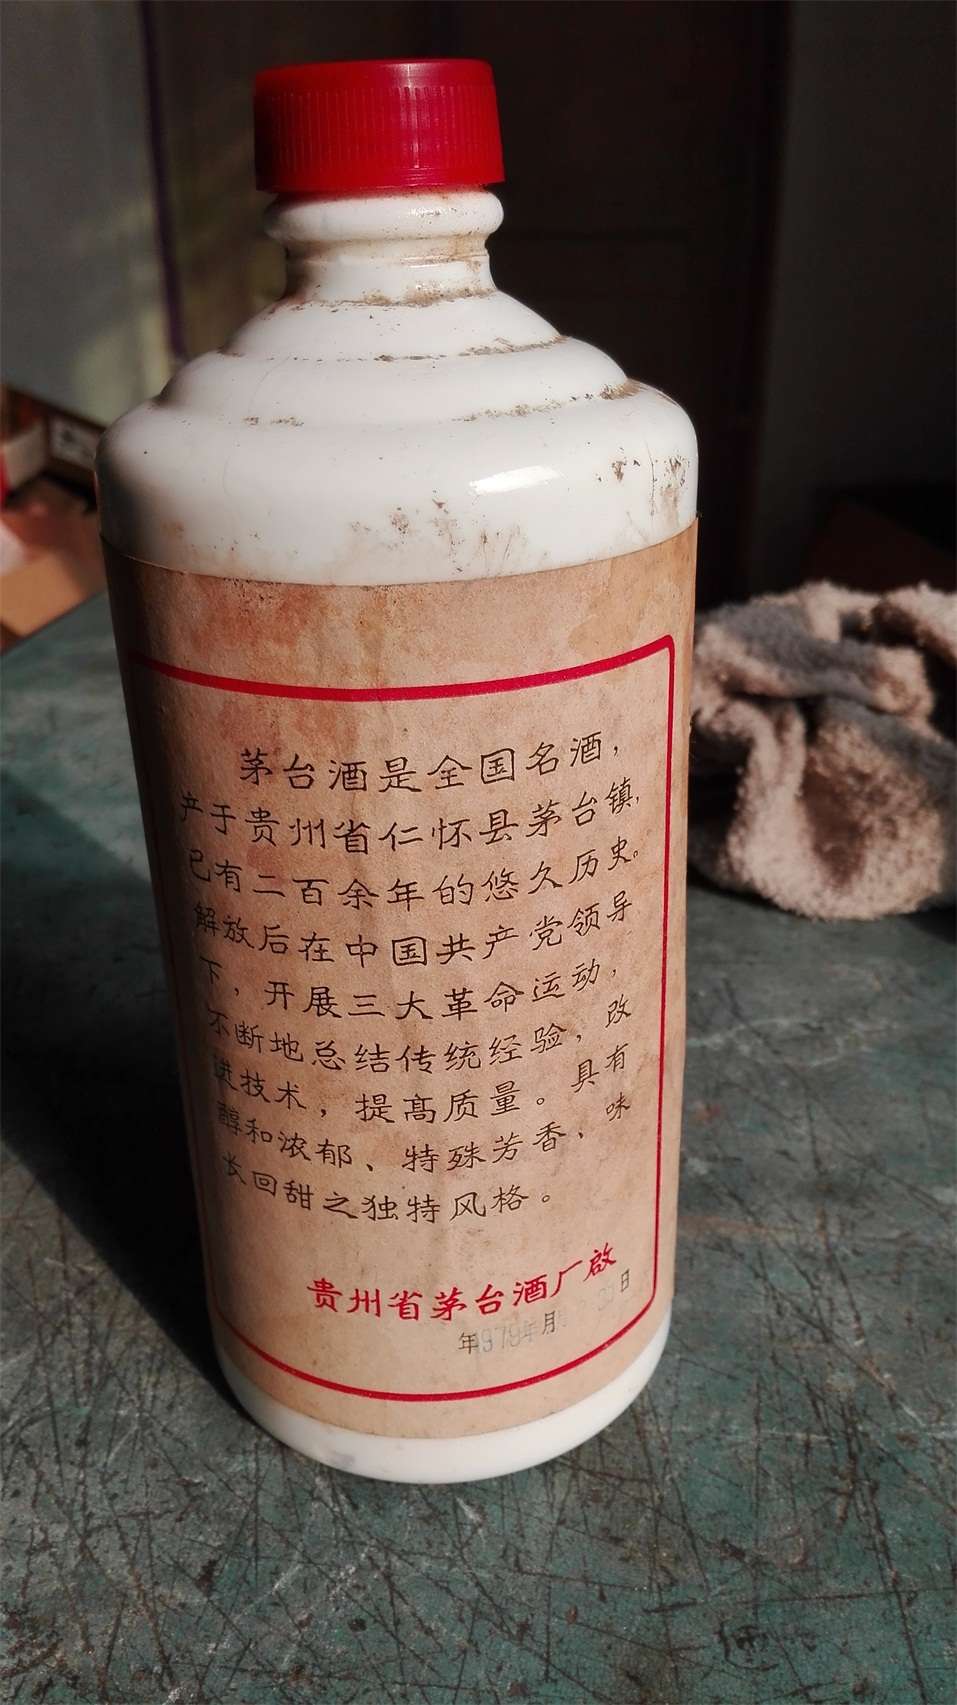 茅台酒是全国名酒，
产于贵州省仁怀县茅台镇，
已有二百余年的悠久历史。
解放后在中国共产党领导
下，开展三大革命运动，
不断地总结传统经验，改
进技术，提高质量。具有
醇和浓郁、特殊芳香、味
长回甜之独特风格。
贵州省茅台酒厂啟
年1979年月 日